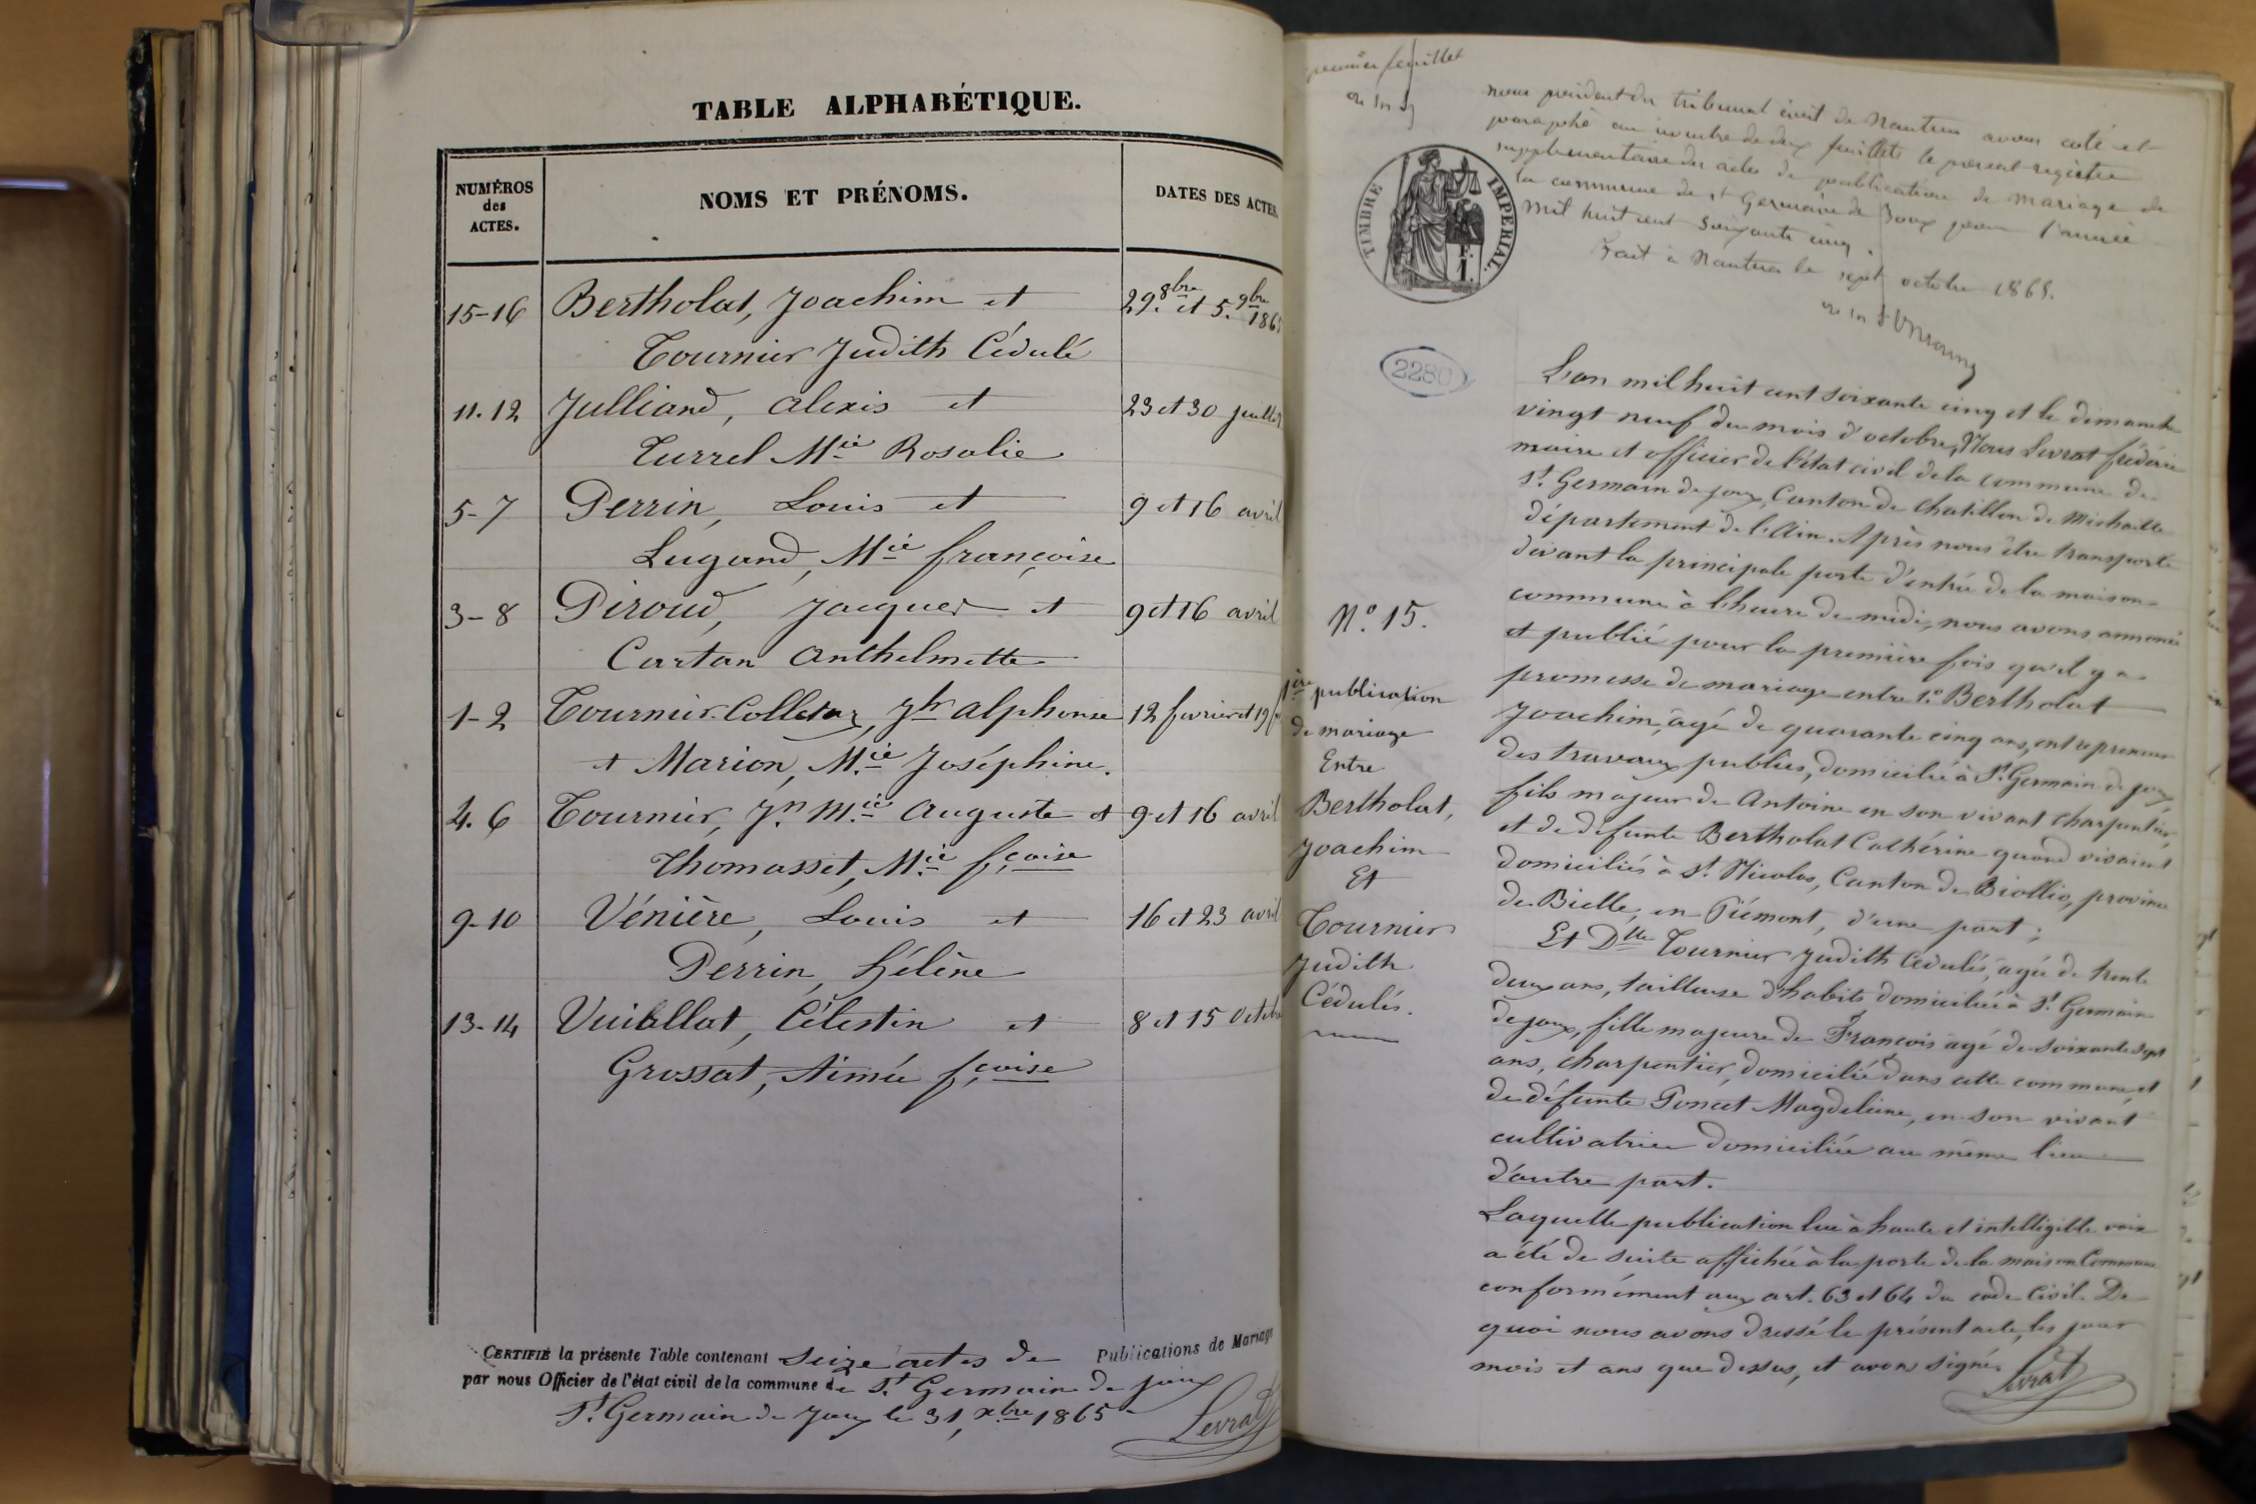 TABLE ALPHABÉTIQUE.
NUMÉROS
des
ACTES.
NOMS ET PRÉNOMS.
DATES DES ACTES.
15-16 Bertholat, Joachim et 29. 8bre et 5. 9bre 1865
Tournier Judith Cédulé
11.12 Julliand, Alexis et 23 et 30 juillet
Turrel Mie Rosalie
5-7 Perrin, Louis et 9 et 16 avril
Lugand, Mie françoise
3-8 Piroud, Jacques et 9 et 16 avril
Cartan Anthelmette
1-2 Tournier-Colletaz, Jh Alphonse 12 fevrier et 19
et Marion, Mie Joséphine.
4.6 Tournier, Jn Mie Auguste et 9 et 16 avril
Thomasset, Mie fçoise
9-10 Vénière, Louis et 16 et 23 avril
Perrin, Hélène
13-14 Vuiallat, Célestin et 8 et 15 octobre
Grossat, Aimée fçoise
CERTIFIÉ la présente Table contenant Seize actes de Publications de Mariage
par nous Officier de l'état civil de la commune de St Germain de joux
St Germain de Joux le 31, xbre 1865
Levrat
premier feuillet
nous président du tribunal civil de Nantua avons coté et
paraphé au nombre de deux feuillets le present registre
supplementaire des actes de publications de mariage de
la commune de st Germain de Joux pour l'année
mil huit cent soixante cinq.
Fait à Nantua le sept octobre 1865.
TIMBRE IMPÉRIAL.
E. I.
2280
L'an mil huit cent soixante cinq et le dimanche
vingt neuf du mois d'octobre, Nous Levrat fréderic
maire et officier de l'état civil de la commune de
St. Germain de joux, Canton de Chatillon de Michaille
département de l'Ain. Après nous être transporté
devant la principale porte d'entrée de la maison
commune à l'heure de midi, nous avons annoncé
et publié pour la première fois qu'il y a
promesse de mariage entre 1o Bertholat
Joachim, âgé de quarante cinq ans, entrepreneur
des travaux publics, domicilié à St. Germain de joux
fils majeur de Antoine en son vivant charpentier,
et de défunte Bertholat Cathérine quand vivaient
domiciliés à St. Nicolas, Canton de Biollio, province
de Bielle, en Piémont, d'une part;
Et Dlle Tournier Judith Cédulés, agée de trente
deux ans, tailleuse d'habits domiciliée à St. Germain
de joux, fille majeure de François agé de soixante sept
ans, charpentier, domicilié dans cette commune, et
de défunte Poncet Magdeleine, en son vivant
cultivatrice domiciliée au même lieu
d'autre part.
Laquelle publication lue à haute et intelligible voix
a été de suite affichée à la porte de la maison Commune
conformément aux art. 63 et 64 du code Civil. De
quoi nous avons dressé le présent acte, les jour
mois et ans que dessus, et avons signé.
Levrat
No. 15.
1ère publication
de mariage
Entre
Bertholat,
Joachim
Et
Tournier
Judith
Cédulés.